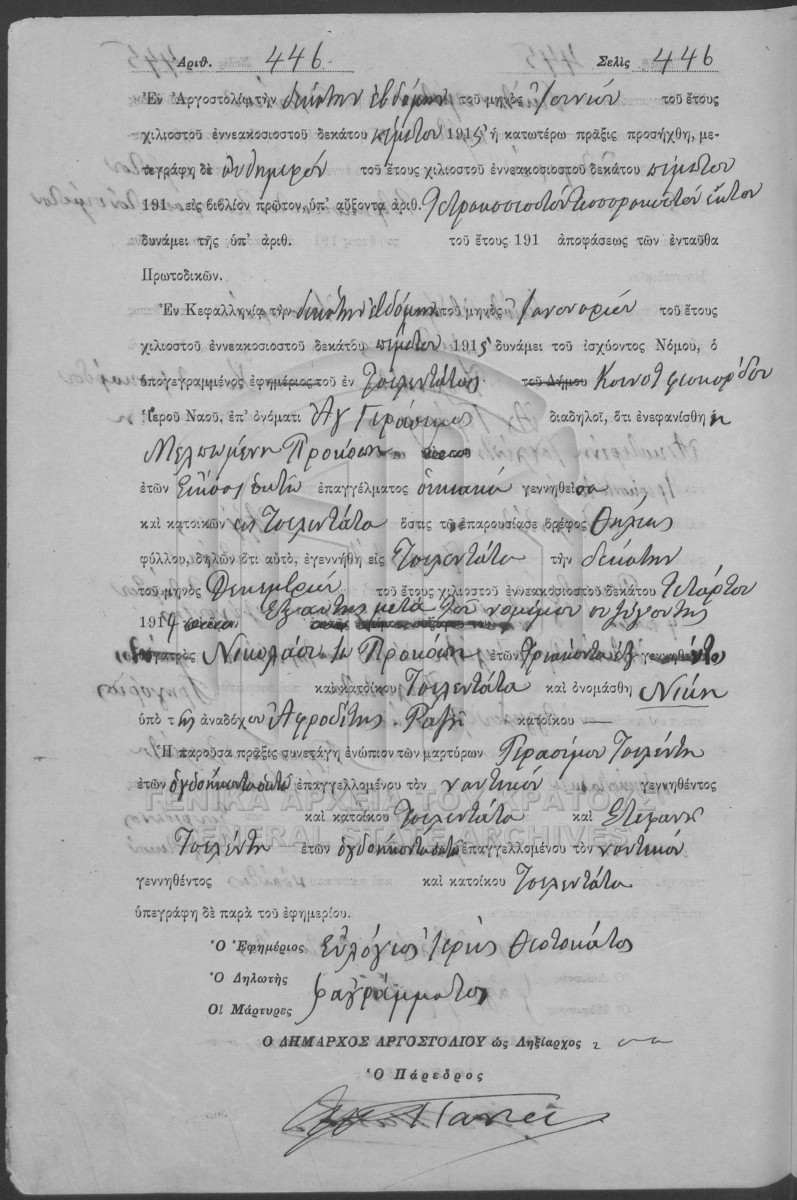 Ἀριθ. 446 Σελὶς 446
Ἐν Ἀργοστολίῳ τὴν δεκάτην ἑβδόμην τοῦ μηνὸς Ἰουνίου τοῦ ἔτους
χιλιοστοῦ ἐννεακοσιοστοῦ δεκάτου πέμπτου 1915 ἡ κατωτέρω πρᾶξις προσήχθη, με-
τεγράφη δὲ αὐθημερόν τοῦ ἔτους χιλιοστοῦ ἐννεακοσιοστοῦ δεκάτου πέμπτου
191 εἰς βιβλίον πρῶτον, ὑπ' αὔξοντα ἀριθ. Τετρακοσιοστόν τεσσαρακοστόν ἕκτον
δυνάμει τῆς ὑπ' ἀριθ. τοῦ ἔτους 191 ἀποφάσεως τῶν ἐνταῦθα
Πρωτοδικῶν.
Ἐν Κεφαλληνίᾳ τὴν δεκάτην ἑβδόμην τοῦ μηνὸς Ἰανουαρίου τοῦ ἔτους
χιλιοστοῦ ἐννεακοσιοστοῦ δεκάτου πέμπτου 1915 δυνάμει τοῦ ἰσχύοντος Νόμου, ὁ
ὑπογεγραμμένος ἐφημέριος τοῦ ἐν Τσελεντάτοις τοῦ Δήμου Κοινοτ
Ἱεροῦ Ναοῦ, ἐπ' ὀνόματι Ἁγ Γεράσιμος διαδηλοῖ, ὅτι ἐνεφανίσθη ἡ
Μελπωμένη
ἐτῶν Εἴκοσι ὀκτὼ ἐπαγγέλματος οἰκιακά γεννηθεῖσα
καὶ κατοικῶν εἰς Τσελεντάτα ὅστις τῷ ἐπαρουσίασε βρέφος Θήλεως
φύλλου, δηλῶν ὅτι αὐτὸ, ἐγεννήθη εἰς Τσελεντάτα τὴν δεκάτην
τοῦ μηνὸς Δεκεμβρίου τοῦ ἔτους χιλιοστοῦ ἐννεακοσιοστοῦ δεκάτου Τετάρτου
1914 Ἐξ αὐτῆς μετὰ τοῦ νομίμου συζύγου της
Νικολάου ἐτῶν τριάκοντα ἕξ γεννηθέντος
καὶ κατοίκου Τσελεντάτα καὶ ὀνομάσθη Νίκη
ὑπὸ τῆς ἀναδόχου Ἀφροδίτης κατοίκου —
Ἡ παροῦσα πρᾶξις συνετάγη ἐνώπιον τῶν μαρτύρων Γερασίμου Τσελέντη
ἐτῶν ὀγδοήκοντα ὀκτὼ ἐπαγγελλομένου τὸν ναυτικόν γεννηθέντος
καὶ κατοίκου Τσελεντάτα καὶ Στεφανῆ
Τσελέντη ἐτῶν ὀγδοήκοντα ὀκτὼ ἐπαγγελλομένου τὸν ναυτικόν
γεννηθέντος καὶ κατοίκου Τσελεντάτα
ὑπεγράφη δὲ παρὰ τοῦ ἐφημερίου.
Ὁ Ἐφημέριος Εὐλόγιος Ἱερεὺς Θεοτοκάτος
Ὁ Δηλωτὴς
Οἱ Μάρτυρες ἀγράμματοι
Ὁ ΔΗΜΑΡΧΟΣ ΑΡΓΟΣΤΟΛΙΟΥ ὡς Ληξίαρχος
Ὁ Πάρεδρος
ΓΕΝΙΚΑ ΑΡΧΕΙΑ ΤΟΥ ΚΡΑΤΟΥΣ
GENERAL STATE ARCHIVES